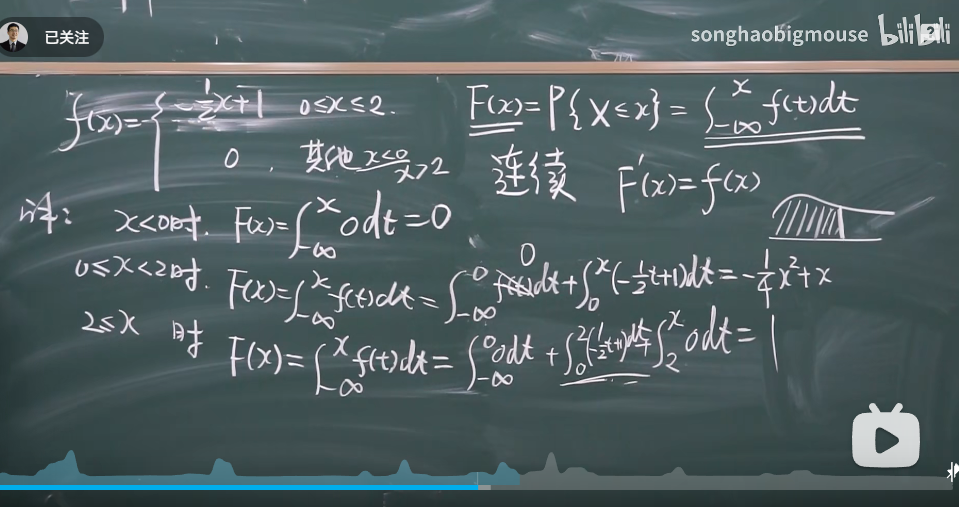 已关注
songhaobigmouse bilibili
f(x)= { -1/2x+1 0≤x≤2.
0, 其他 x<0 x>2
F(x)=P{X≤x}=∫_{-∞}^{x} f(t)dt
连续 F'(x)=f(x)
x<0时. F(x)=∫_{-∞}^{x} 0dt=0
0≤x<2时. F(x)=∫_{-∞}^{x} f(t)dt=∫_{-∞}^{0} 0 f(t)dt+∫_{0}^{x}(-1/2t+1)dt=-1/4x²+x
2≤x 时 F(x)=∫_{-∞}^{x} f(t)dt=∫_{-∞}^{0} 0dt+∫_{0}^{2}(-1/2t+1)dt+∫_{2}^{x} 0dt=1